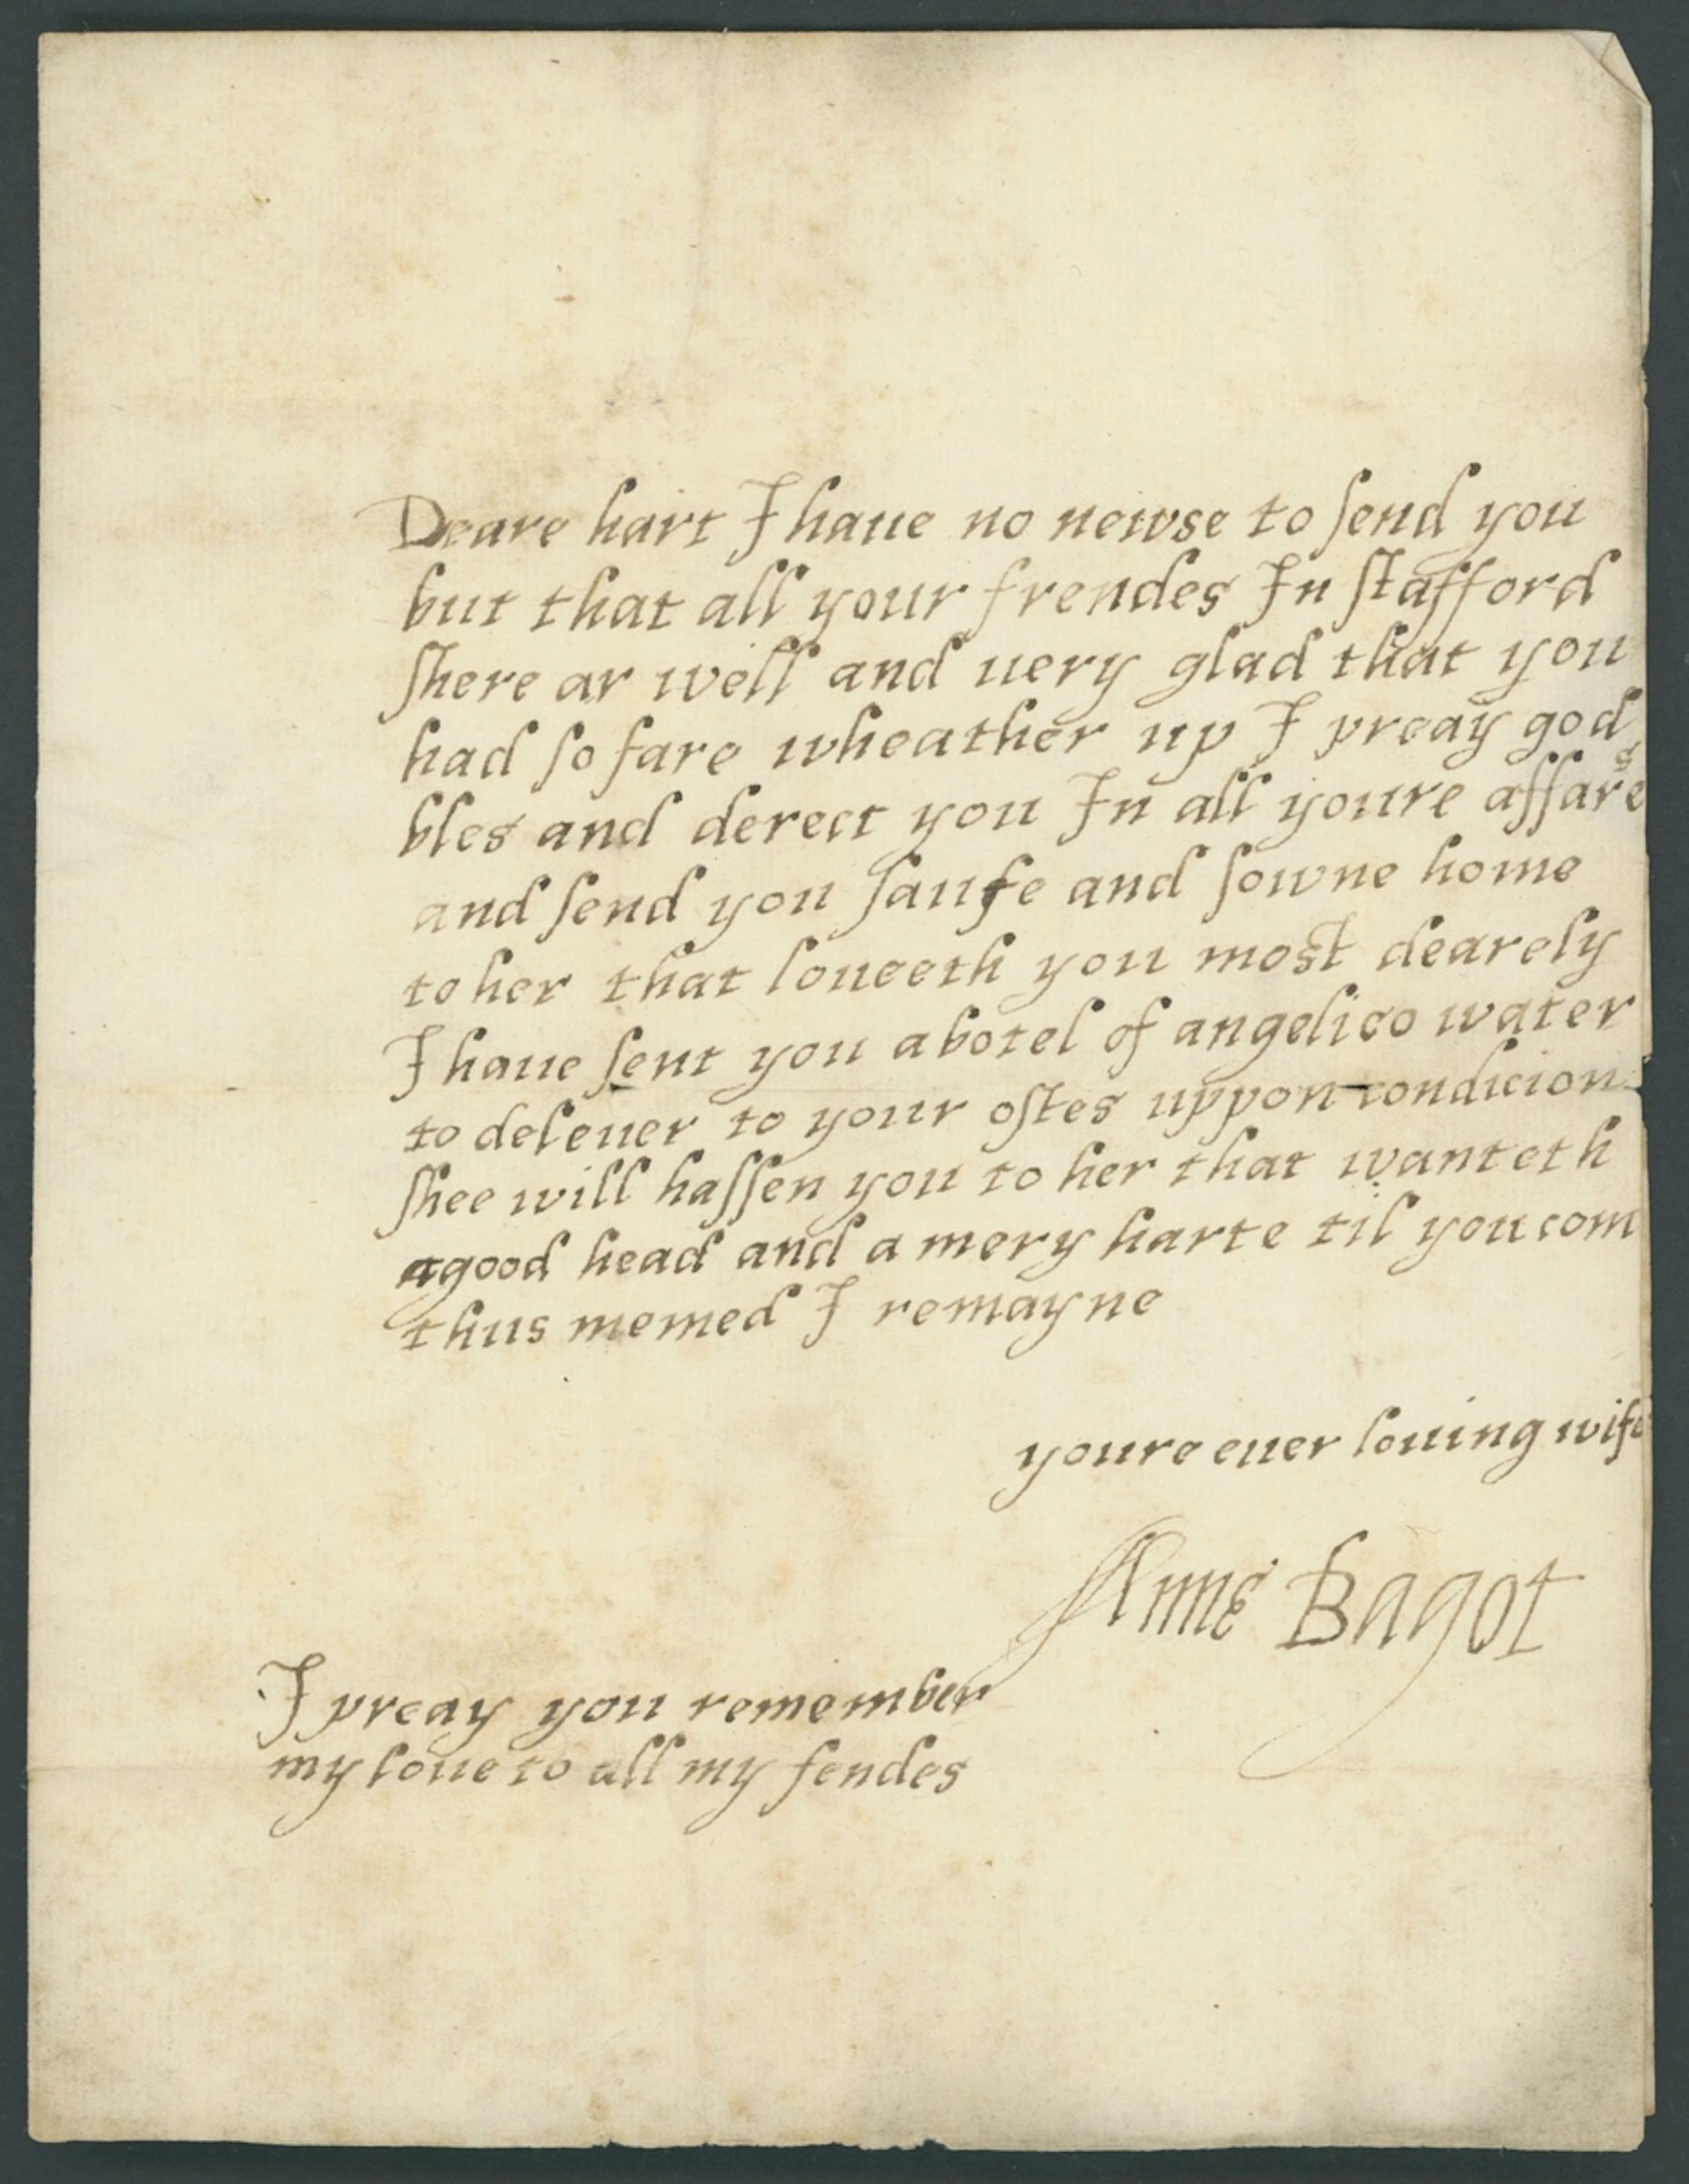 Deare hart I haue no newse to send you
but that all your frendes In stafford
shere ar well and uery glad that you
had so fare wheather up I preay god
bles and derect you In all youre affares
and send you saufe and sowne home
to her that loueeth you most dearely
I haue sent you a botel of angelico water
to deleuer to your ostes uppon condicion
shee will hassen you to her that wanteth
a good head and a mery harte til you com
thus memed I remayne
youre euer louing wife
Anne Bagot
I preay you remember
my loue to all my fendes